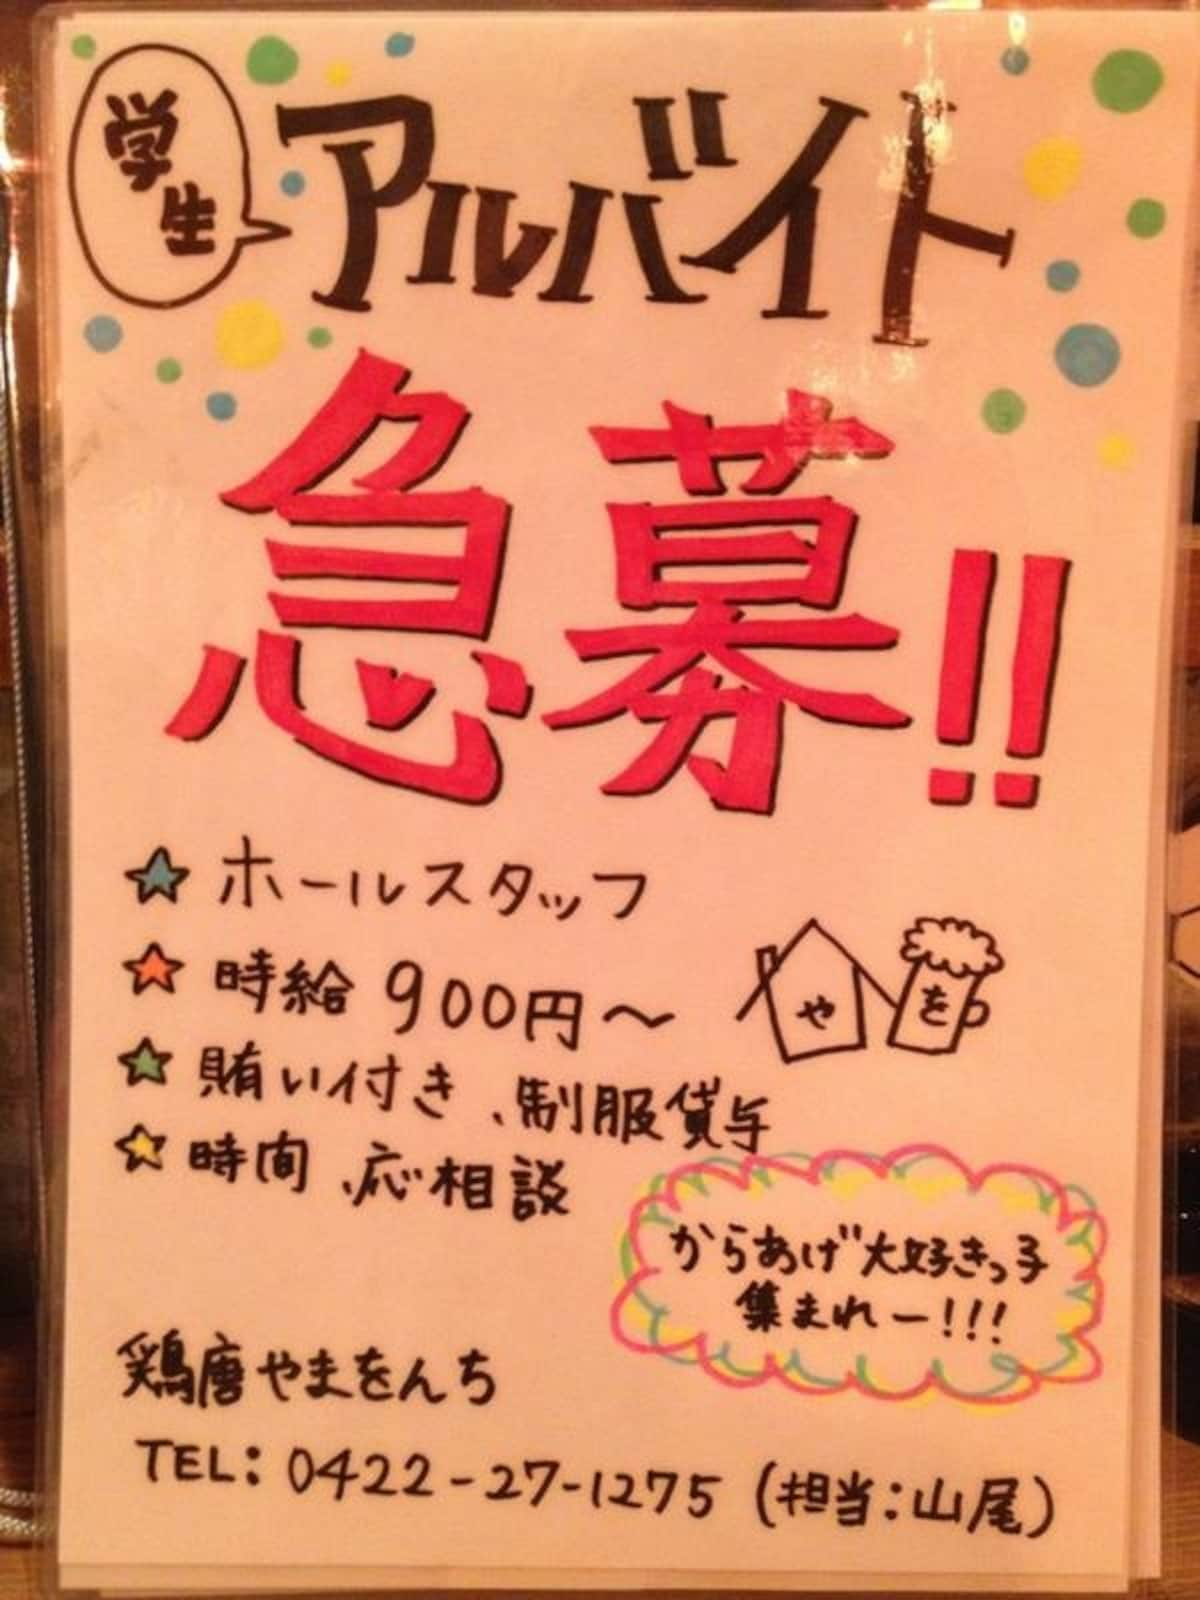 学生
アルバイト
急募!!
ホールスタッフ
時給 900円〜
や を
賄い付き、制服貸与
時間、応相談
からあげ大好きっ子
集まれー!!!
鶏唐やまをんち
TEL: 0422-27-1275 (担当:山尾)